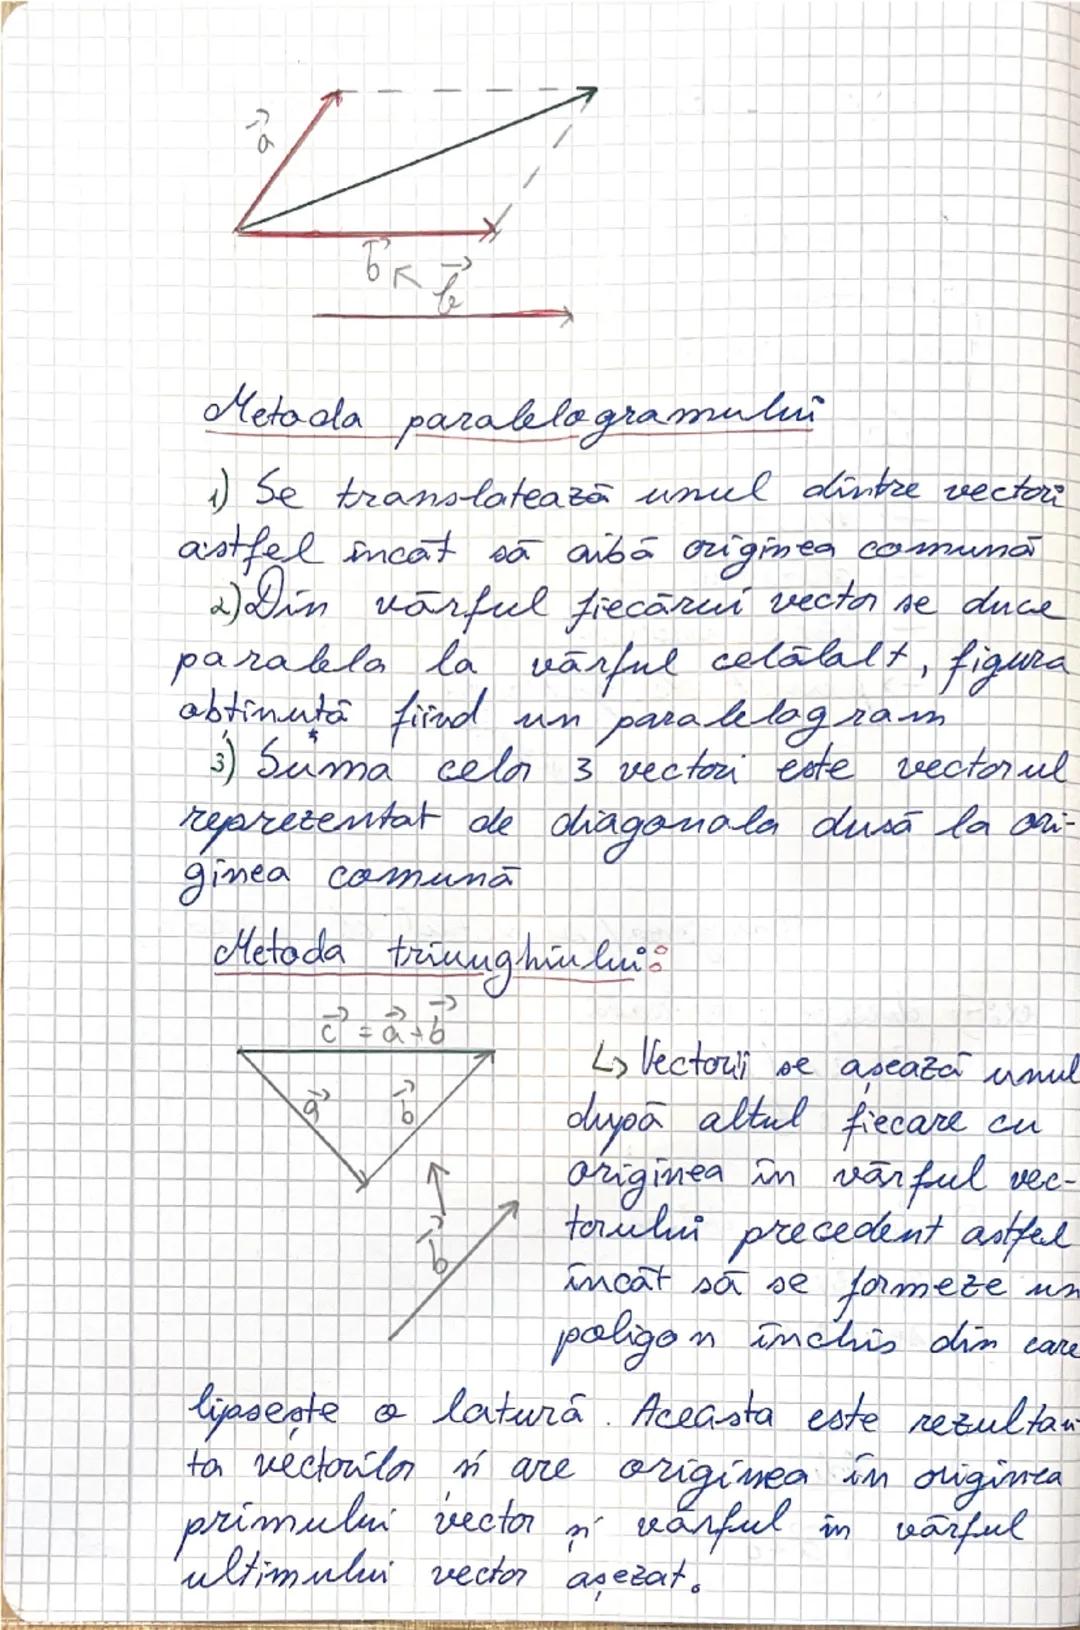 a
b
b
Metoda paralelogramului
1) Se translatează unul dintre vectori
astfel încât să aibă originea comună
2) Din vârful fiecărui vector se duce
paralela la vârful celălalt, figura
obținută fiind un paralelogram
3) Suma celor 3 vectori este vectorul
reprezentat de diagonala dusă la ori-
ginea comună
Metoda triunghiului:
c = a + b
a
b
b
↳ Vectorii se așează unul
după altul fiecare cu
originea în vârful vec-
torului precedent astfel
încât să se formeze un
poligon închis din care
lipsește o latură. Aceasta este rezultan
ta vectorilor și are originea în originea
primului vector și vârful în vârful
ultimului vector așezat.